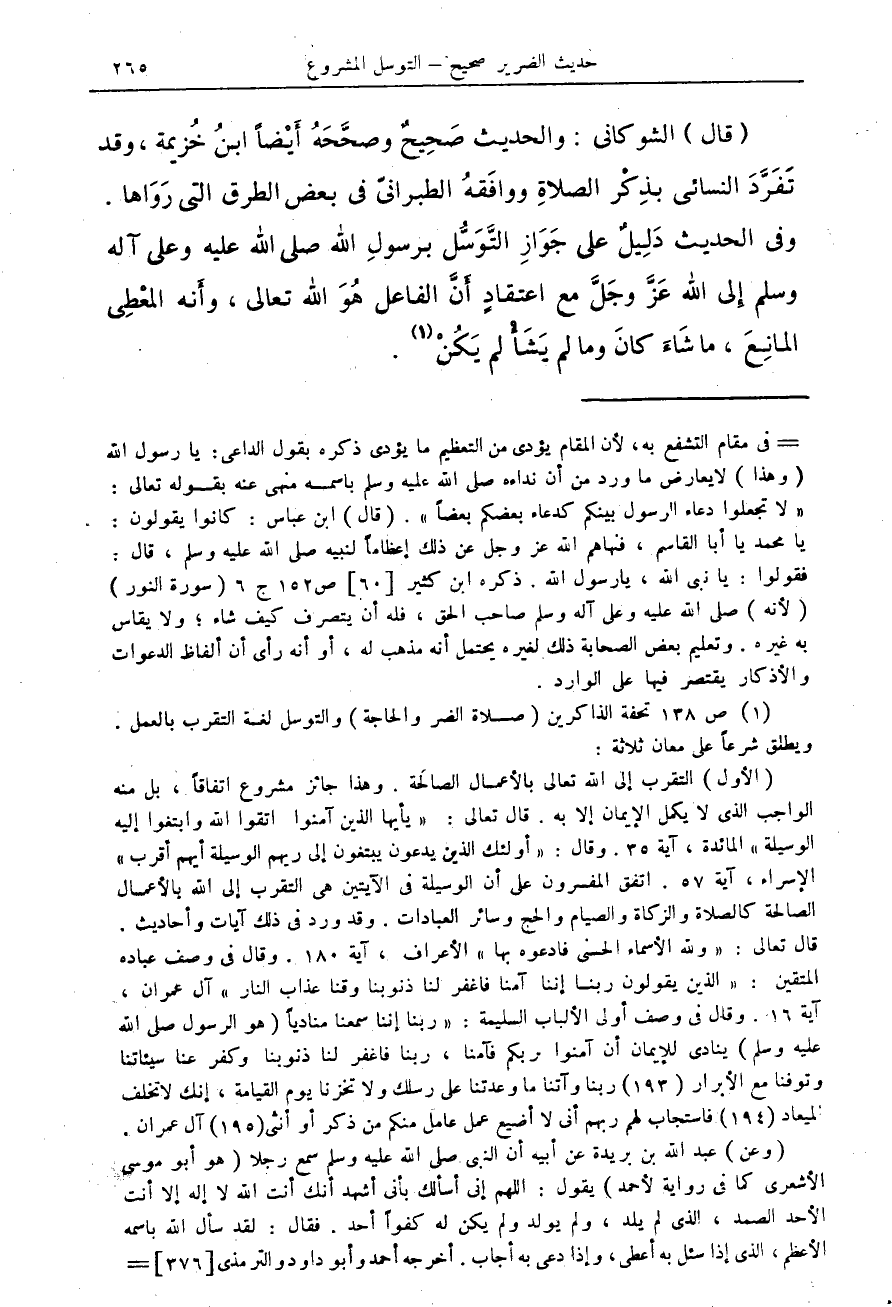 حديث الضرير صحيح – التوسل المشروع ٢٦٥
( قال ) الشوكانى : والحديث صَحِيحٌ وصحَّحَهُ أَيْضاً ابنُ خُزيمة ، وقد
تَفَرَّدَ النسائى بذِكْر الصلاةِ ووافَقهُ الطبرانىّ فى بعض الطرق التى رَوَاها .
وفى الحديث دَلِيلٌ على جَوَازِ التَّوَسُّل برسولِ الله صلى الله عليه وعلى آله
وسلم إلى الله عَزَّ وجَلَّ مع اعتقادِ أَنَّ الفاعل هُوَ الله تعالى ، وأَنه المعْطِى
المانِعَ ، ماشَاءَ كانَ ومالم يَشَأْ لم يَكُنْ(١) .
= فى مقام التشفع به، لأن المقام يؤدى من التعظيم ما يؤدى ذكره بقول الداعى: يا رسول الله
( وهذا ) لايعارض ما ورد من أن نداءه صلى الله عليه وسلم باسمه منهى عنه بقوله تعالى :
« لا تجعلوا دعاء الرسول بينكم كدعاء بعضكم بعضاً » . (قال) ابن عباس : كانوا يقولون :
يا محمد يا أبا القاسم ، فنهاهم الله عز وجل عن ذلك إعظاماً لنبيه صلى الله عليه وسلم ، قال :
فقولوا : يا نبى الله ، يارسول الله . ذكره ابن كثير [٦٠] ص١٥٢ ج ٦ ( سورة النور )
( لأنه ) صلى الله عليه وعلى آله وسلم صاحب الحق ، فله أن يتصرف كيف شاء ؛ ولا يقاس
به غيره . وتعليم بعض الصحابة ذلك لغيره يحتمل أنه مذهب له ، أو أنه رأى أن ألفاظ الدعوات
والأذكار يقتصر فيها على الوارد .
(١) ص ١٣٨ تحفة الذاكرين ( صلاة الضر والحاجة ) والتوسل لغة التقرب بالعمل .
ويطلق شرعاً على معان ثلاثة :
(الأول) التقرب إلى الله تعالى بالأعمال الصالحة . وهذا جائز مشروع اتفاقاً ، بل منه
الواجب الذى لا يكمل الإيمان إلا به . قال تعالى : « يأيها الذين آمنوا اتقوا الله وابتغوا إليه
الوسيلة » المائدة ، آية ٣٥ . وقال : « أولئك الذين يدعون يبتغون إلى ربهم الوسيلة أيهم أقرب »
الإسراء ، آية ٥٧ . اتفق المفسرون على أن الوسيلة فى الآيتين هى التقرب إلى الله بالأعمال
الصالحة كالصلاة والزكاة والصيام والحج وسائر العبادات . وقد ورد فى ذلك آيات وأحاديث .
قال تعالى : « ولله الأسماء الحسنى فادعوه بها » الأعراف ، آية ١٨٠ . وقال فى وصف عباده
المتقين : « الذين يقولون ربنا إننا آمنا فاغفر لنا ذنوبنا وقنا عذاب النار » آل عمران ،
آية ١٦ . وقال فى وصف أولى الألباب السليمة : « ربنا إننا سمعنا منادياً ( هو الرسول صلى الله
عليه وسلم ) ينادى للإيمان أن آمنوا بربكم فآمنا ، ربنا فاغفر لنا ذنوبنا وكفر عنا سيئاتنا
وتوفنا مع الأبرار (١٩٣) ربنا وآتنا ما وعدتنا على رسلك ولا تخزنا يوم القيامة ، إنك لاتخلف
الميعاد (١٩٤) فاستجاب لهم ربهم أنى لا أضيع عمل عامل منكم من ذكر أو أنثى(١٩٥) آل عمران .
(وعن) عبد الله بن بريدة عن أبيه أن النبى صلى الله عليه وسلم سمع رجلا ( هو أبو موسى
الأشعرى كما فى رواية لأحمد ) يقول : اللهم إنى أسألك بأنى أشهد أنك أنت الله لا إله إلا أنت
الأحد الصمد ، الذى لم يلد ، ولم يولد ولم يكن له كفواً أحد . فقال : لقد سأل الله باسمه
الأعظم ، الذى إذا سئل به أعطى، وإذا دعى به أجاب . أخرجه أحمد وأبو داود والترمذى [٣٧٦] =